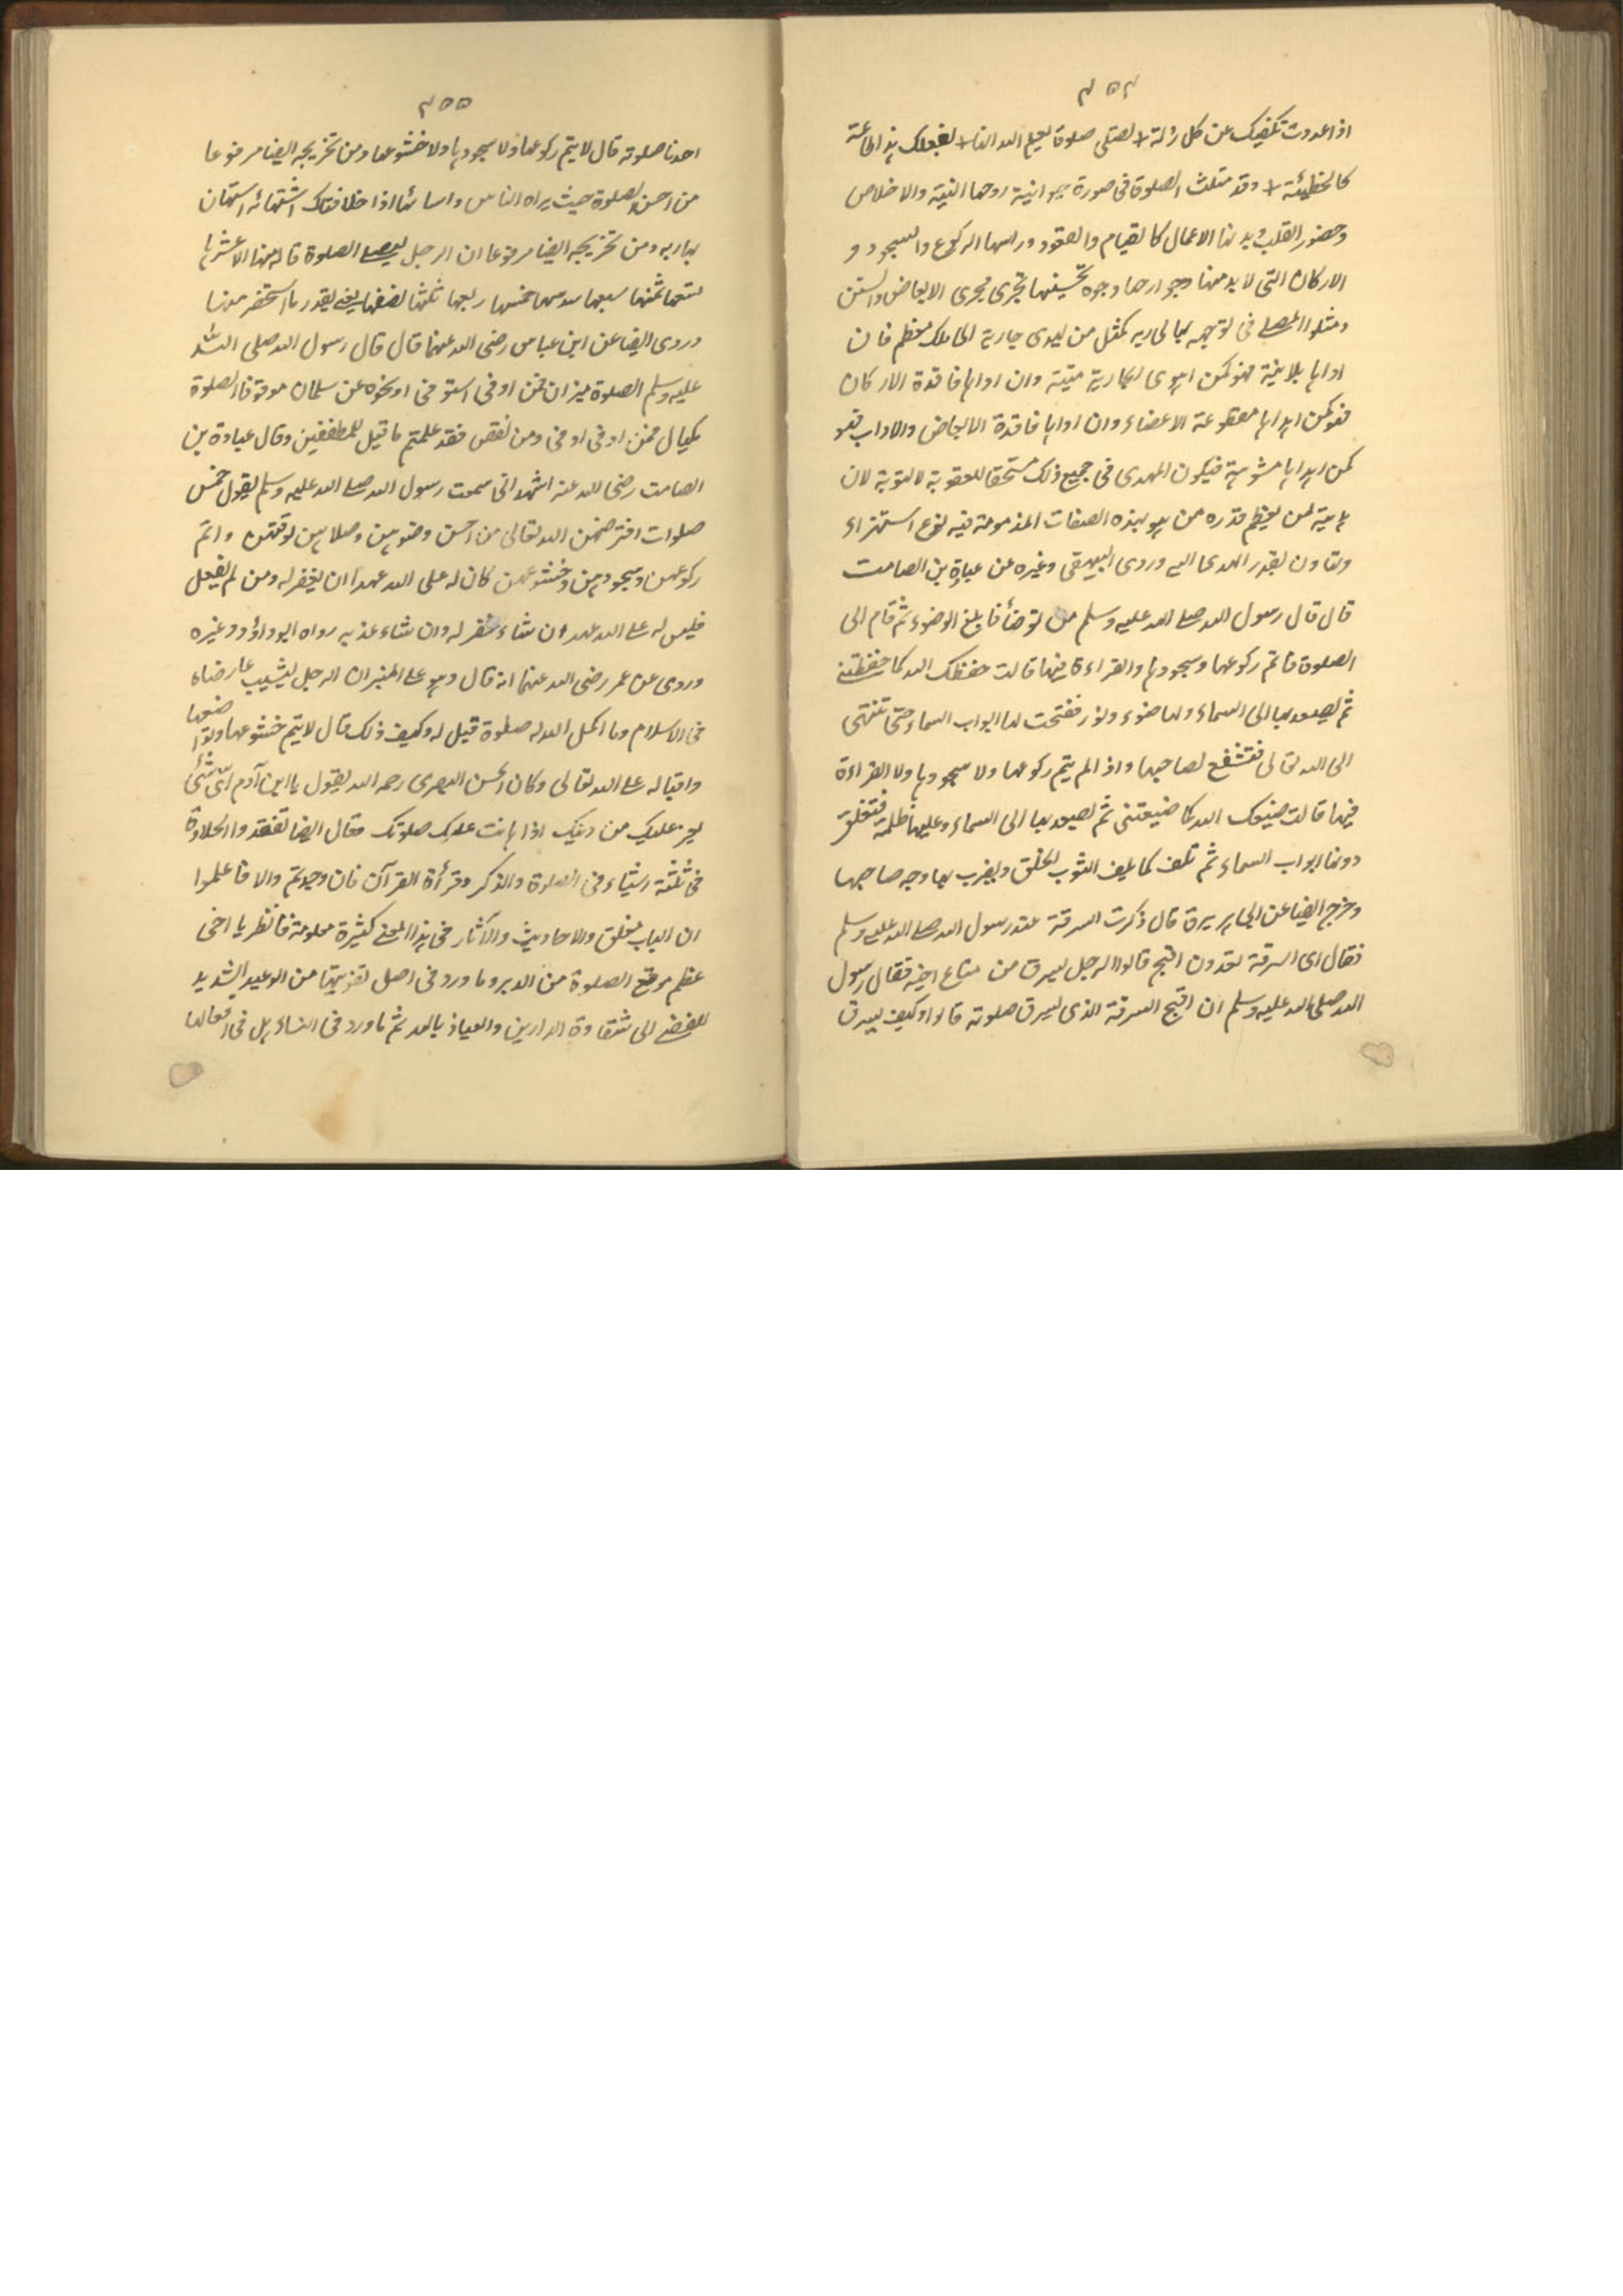 ٤٥٤
اذا عددت تكفيك عن كل زلة لا تصلى صلوة يعلم الله انها لا بفعلك هذا طاعة
كالخطيئة لا وقد مثلت الصلوة فى صورة حيوانية روحها النية والاخلاص
وحضور القلب وبدنها الاعمال كالقيام والقعود وراسها الركوع والسجود و
الاركان التى لا بد منها وجوارحها وجوه تحسينها تجرى مجرى الابعاض والسنن
ومثلوا المصلى فى توجهه بها لى ربه كمثل من يهدى جارية الى ملك معظم فان
اداها بلا نية فهو كمن اهدى الجارية ميتة وان اداها فاقدة الاركان
فهو كمن اهداها مقطوعة الاعضاء وان اداها فاقدة الابعاض والاداب فهو
كمن اهداها مشوهة فيكون المهدى فى جميع ذلك مستحقا للعقوبة لا للتوبة لان
هدية لمن يعظم قدره من هو بهذه الصفات المذمومة فيه نوع استهزاء
وتهاون بقدر المهدى اليه وروى البيهقى وغيره عن عبادة بن الصامت
قال قال رسول الله صلى الله عليه وسلم من توضأ فابلغ الوضوء ثم قام الى
الصلوة فاتم ركوعها وسجودها والقراءة فيها قالت حفظك الله كما حفظتنى
ثم يصعد بها الى السماء ولها ضوء ونور ففتحت لها ابواب السماء حتى تنتهى
الى الله تعالى فتشفع لصاحبها واذا لم يتم ركوعها ولا سجودها ولا القراءة
فيها قالت ضيعك الله كما ضيعتنى ثم يصعد بها الى السماء وعليها ظلمة فتغلق
دونها ابواب السماء ثم تلف كما يلف الثوب الخلق ويضرب بها وجه صاحبها
وخرج ايضا عن ابى هريرة قال ذكرت السرقة عند رسول الله صلى الله عليه وسلم
فقال اى السرقة تعدون اقبح قالوا الرجل يسرق من متاع اخيه فقال رسول
الله صلى الله عليه وسلم ان اقبح السرقة الذى يسرق صلوته قالوا وكيف يسرق
٤٥٥
احدنا صلوته قال لا يتم ركوعها ولا سجودها ولا خشوعها ومن تخريجه ايضا مرفوعا
من احسن الصلوة حيث يراه الناس واسائها اذا خلا فتلك استهانة استهان
بها ربه ومن تخريجه ايضا مرفوعا ان الرجل ليصلى الصلوة قاله منها الا عشرها
تسعها ثمنها سبعها سدسها خمسها ربعها ثلثها نصفها يعنى بقدر ما استحضر منها
وروى ايضا عن ابن عباس رضى الله عنهما قال قال رسول الله صلى الله
عليه وسلم الصلوة ميزان فمن اوفى استوفى او نحوه عن سلمان موقوفا الصلوة
مكيال فمن اوفى اوفى ومن نقص فقد علمتم ما قيل للمطففين وقال عبادة بن
الصامت رضى الله عنه اشهد انى سمعت رسول الله صلى الله عليه وسلم يقول خمس
صلوات افترضهن الله تعالى من احسن وضوءهن وصلاهن لوقتهن واتم
ركوعهن وسجودهن وخشوعهن كان له على الله عهدا ان يغفر له ومن لم يفعل
فليس له على الله عهد ان شاء غفر له وان شاء عذبه رواه ابو داؤد وغيره
وروى عن عمر رضى الله عنهما انه قال وهو على المنبر ان الرجل ليشيب عارضاه
فى الاسلام وما اكمل الله له صلوة قيل له وكيف ذلك قال لا يتم خشوعها وتواضعها
واقباله على الله تعالى وكان الحسن البصرى رحمه الله يقول يا ابن آدم اىّ شئى
يعز عليك من دينك اذا هانت عليك صلوتك وقال ايضا تفقدوا الحلاوة
فى ثلثة اشياء فى الصلوة والذكر وقرأة القرآن فان وجدتم والا فاعلموا
ان الباب مغلق والاحاديث والآثار فى هذا المعنى كثيرة معلومة فانظر يا اخى
عظم موقع الصلوة من الدين وما ورد فى اصل تفويتها من الوعيد الشديد
المفضى الى شقاوة الدارين والعياذ بالله ثم ما ورد فى انشاء بل فى افعالها